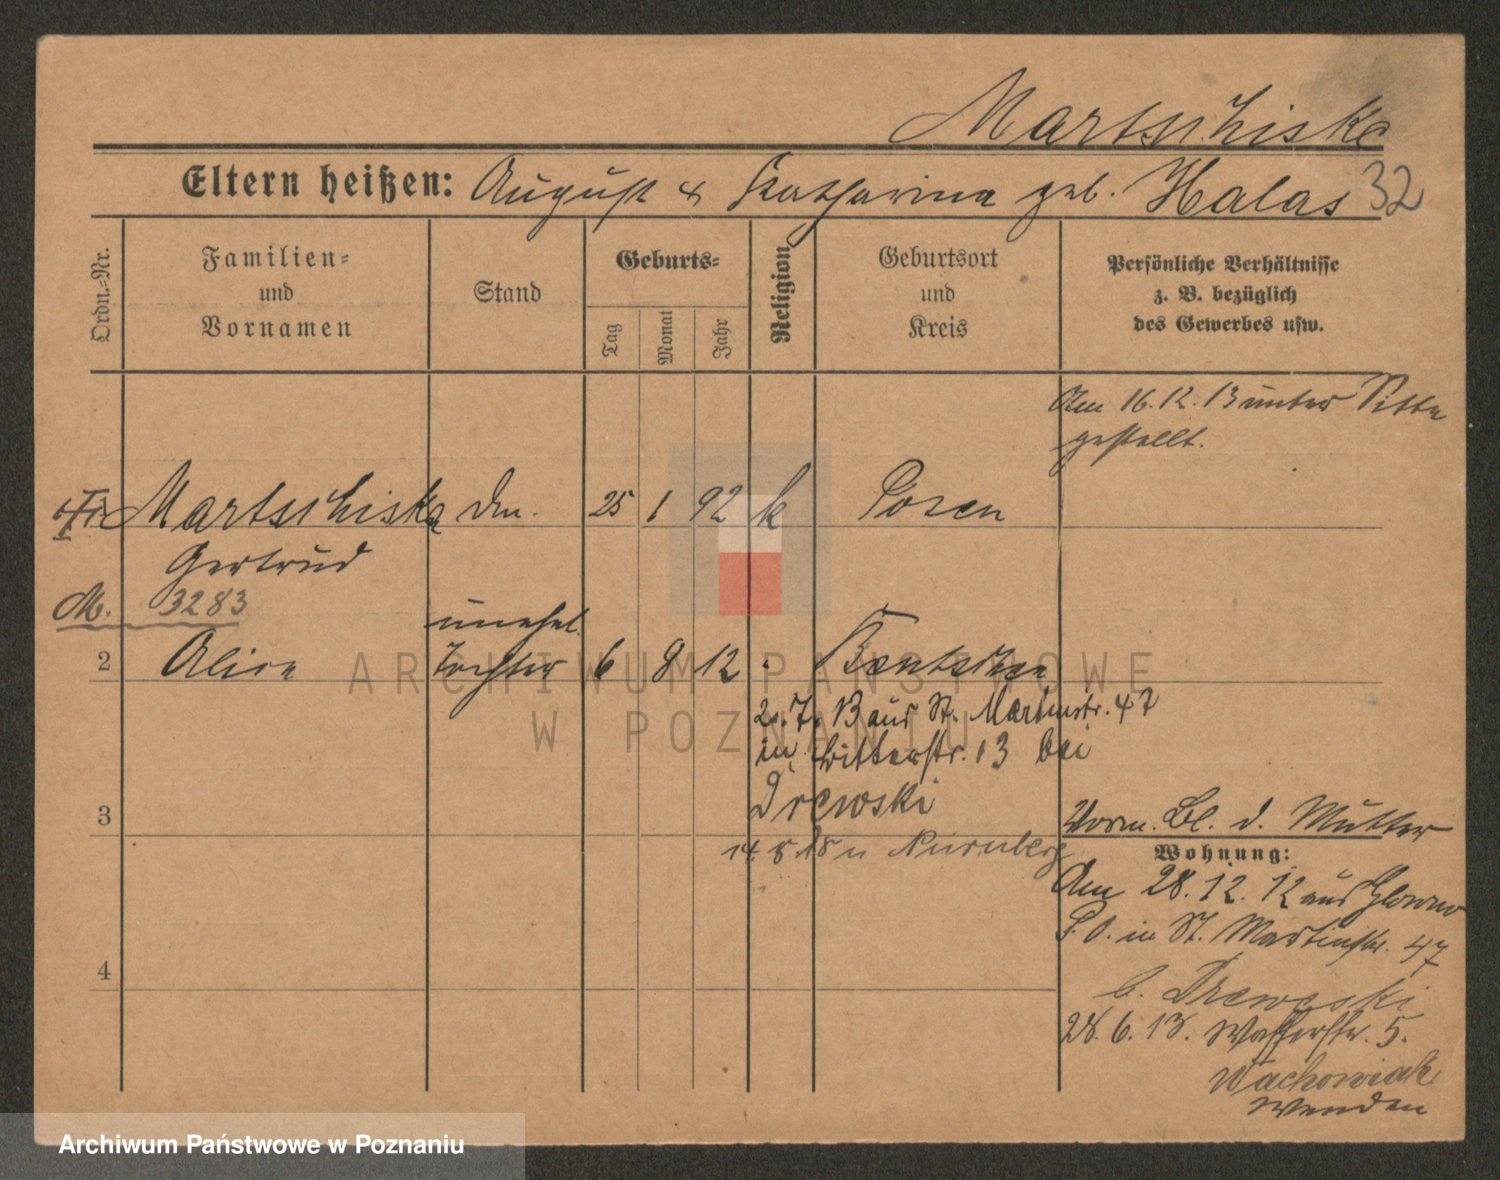 Martschiske
Eltern heißen: August & Katharina geb. Halas 32
Ordn.=Nr.
Familien=
und
Vornamen
Stand
Geburts=
Tag
Monat
Jahr
Religion
Geburtsort
und
Kreis
Persönliche Verhältnisse
z. B. bezüglich
des Gewerbes usw.
Am 16.12.13 unter Sitte
gestellt.
Martschiska 25 1 92 k Posen
Gertrud
M. 3283
unehel.
2 Alice Tochter 6 8 12 Bentschen
ARCHIWUM PAŃSTWOWE
W POZNANIU
7. 13 aus St. Martinstr. 47
in Ritterstr. 13 bei
Drewski
3
n Nürnberg
Vorm. Bl. d. Mutter
Wohnung:
Am 28.12.12 aus Glowno
P. O. in St. Martinstr. 47
b. Drewski
28.6.13. Wasserstr. 5.
Wachowiak
wenden
4
Archiwum Państwowe w Poznaniu